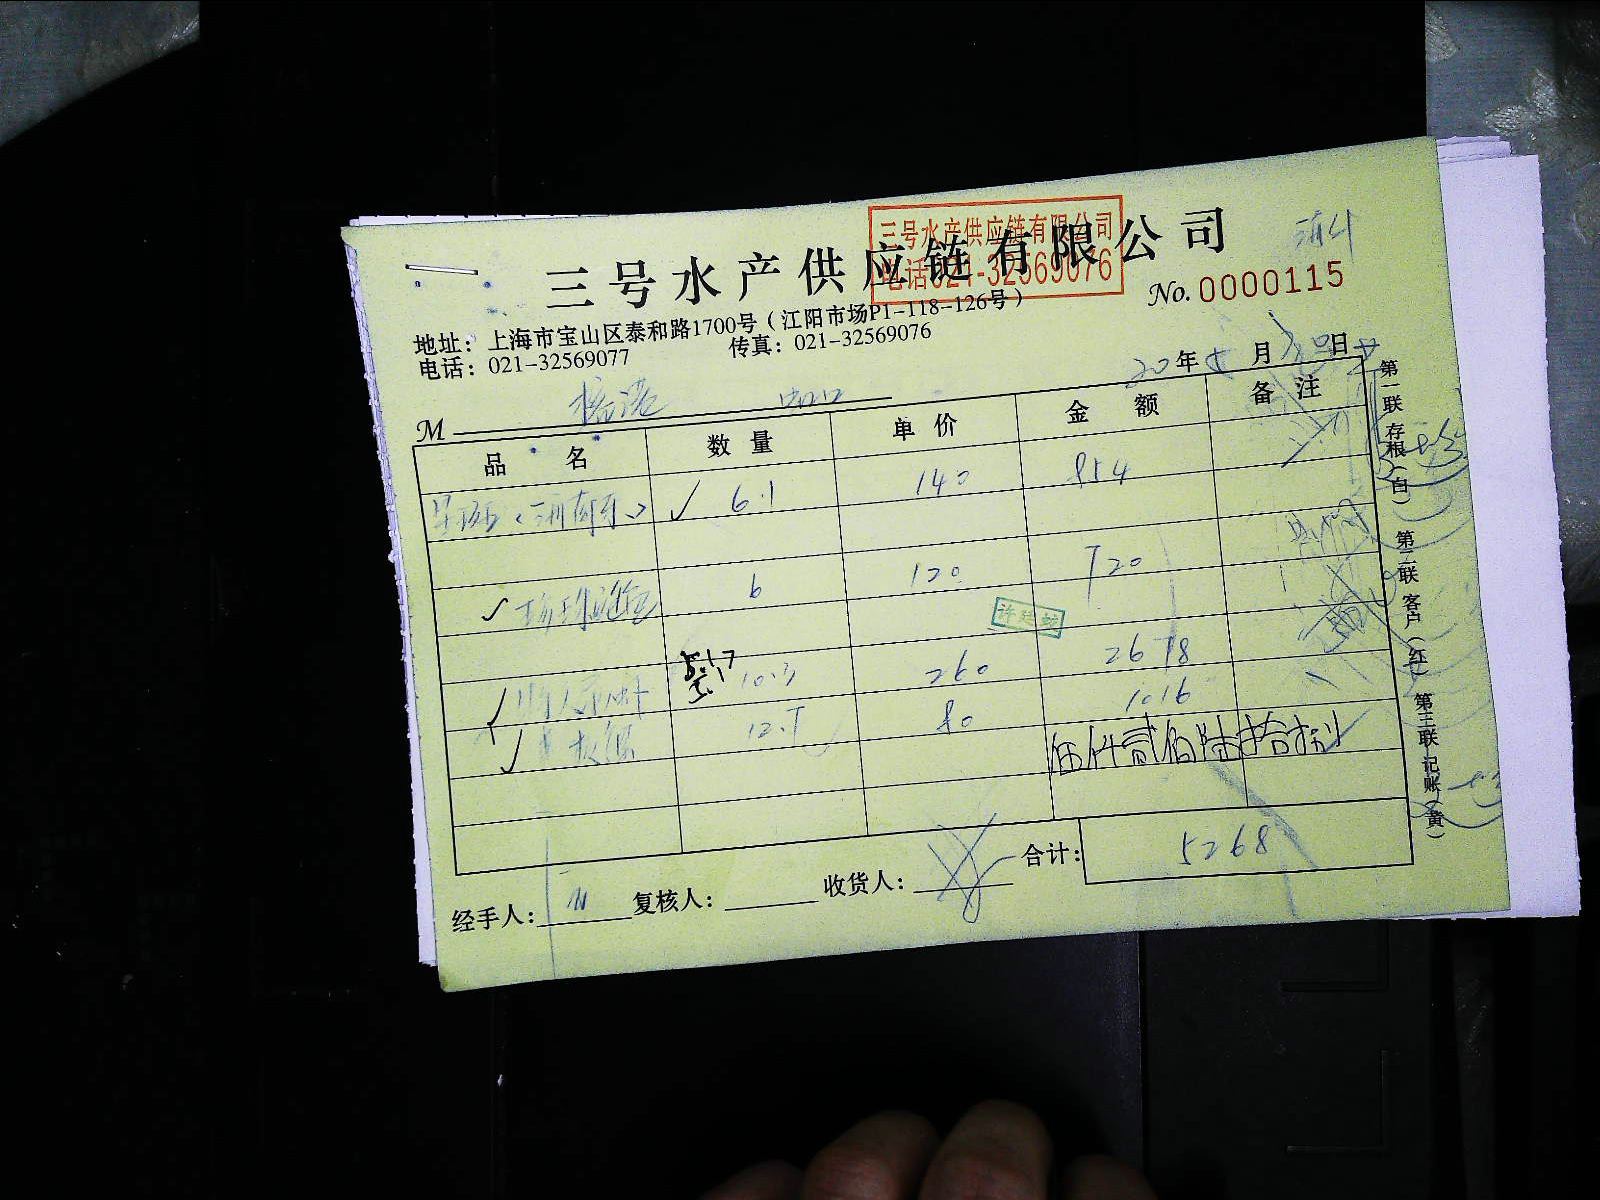 三号水产供应链有限公司
三号水产供应链有限公司
电话:021-32569076
No. 0000115
地址：上海市宝山区泰和路1700号（江阳市场P1-118-126号）
电话：021-32569077 传真：021-32569076
20年 月 日
M
品名 数量 单价 金额 备注
6.1 140 854
6 120 720
许廷
10.3 260 2678
12.7 80 1016
伍仟贰佰陆拾捌
合计： 5268
经手人： 复核人： 收货人：
第一联 存根（白） 第二联 客户（红） 第三联 记账（黄）